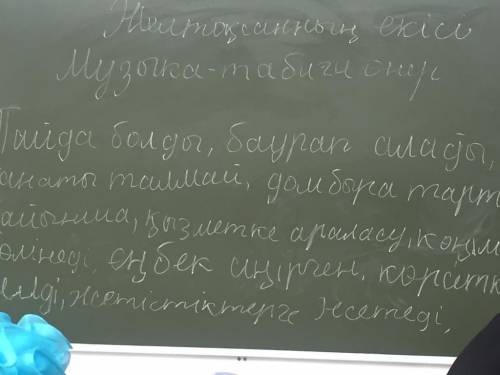 Желтоқсанның екісі
Музыка-табиғи өнер
Пайда болды, баурап алады,
қанаты талмай, домбыра тарт
айынша, қызметке араласу, көңіл
бөлінеді, еңбек сіңірген, көрсетк
келді, жетістіктерге жетеді,